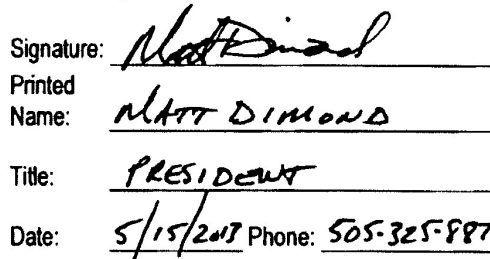 Signature: Matt Dimond
Printed
Name: MATT DIMOND
Title: PRESIDENT
Date: 5/15/2013 Phone: 505-325-887